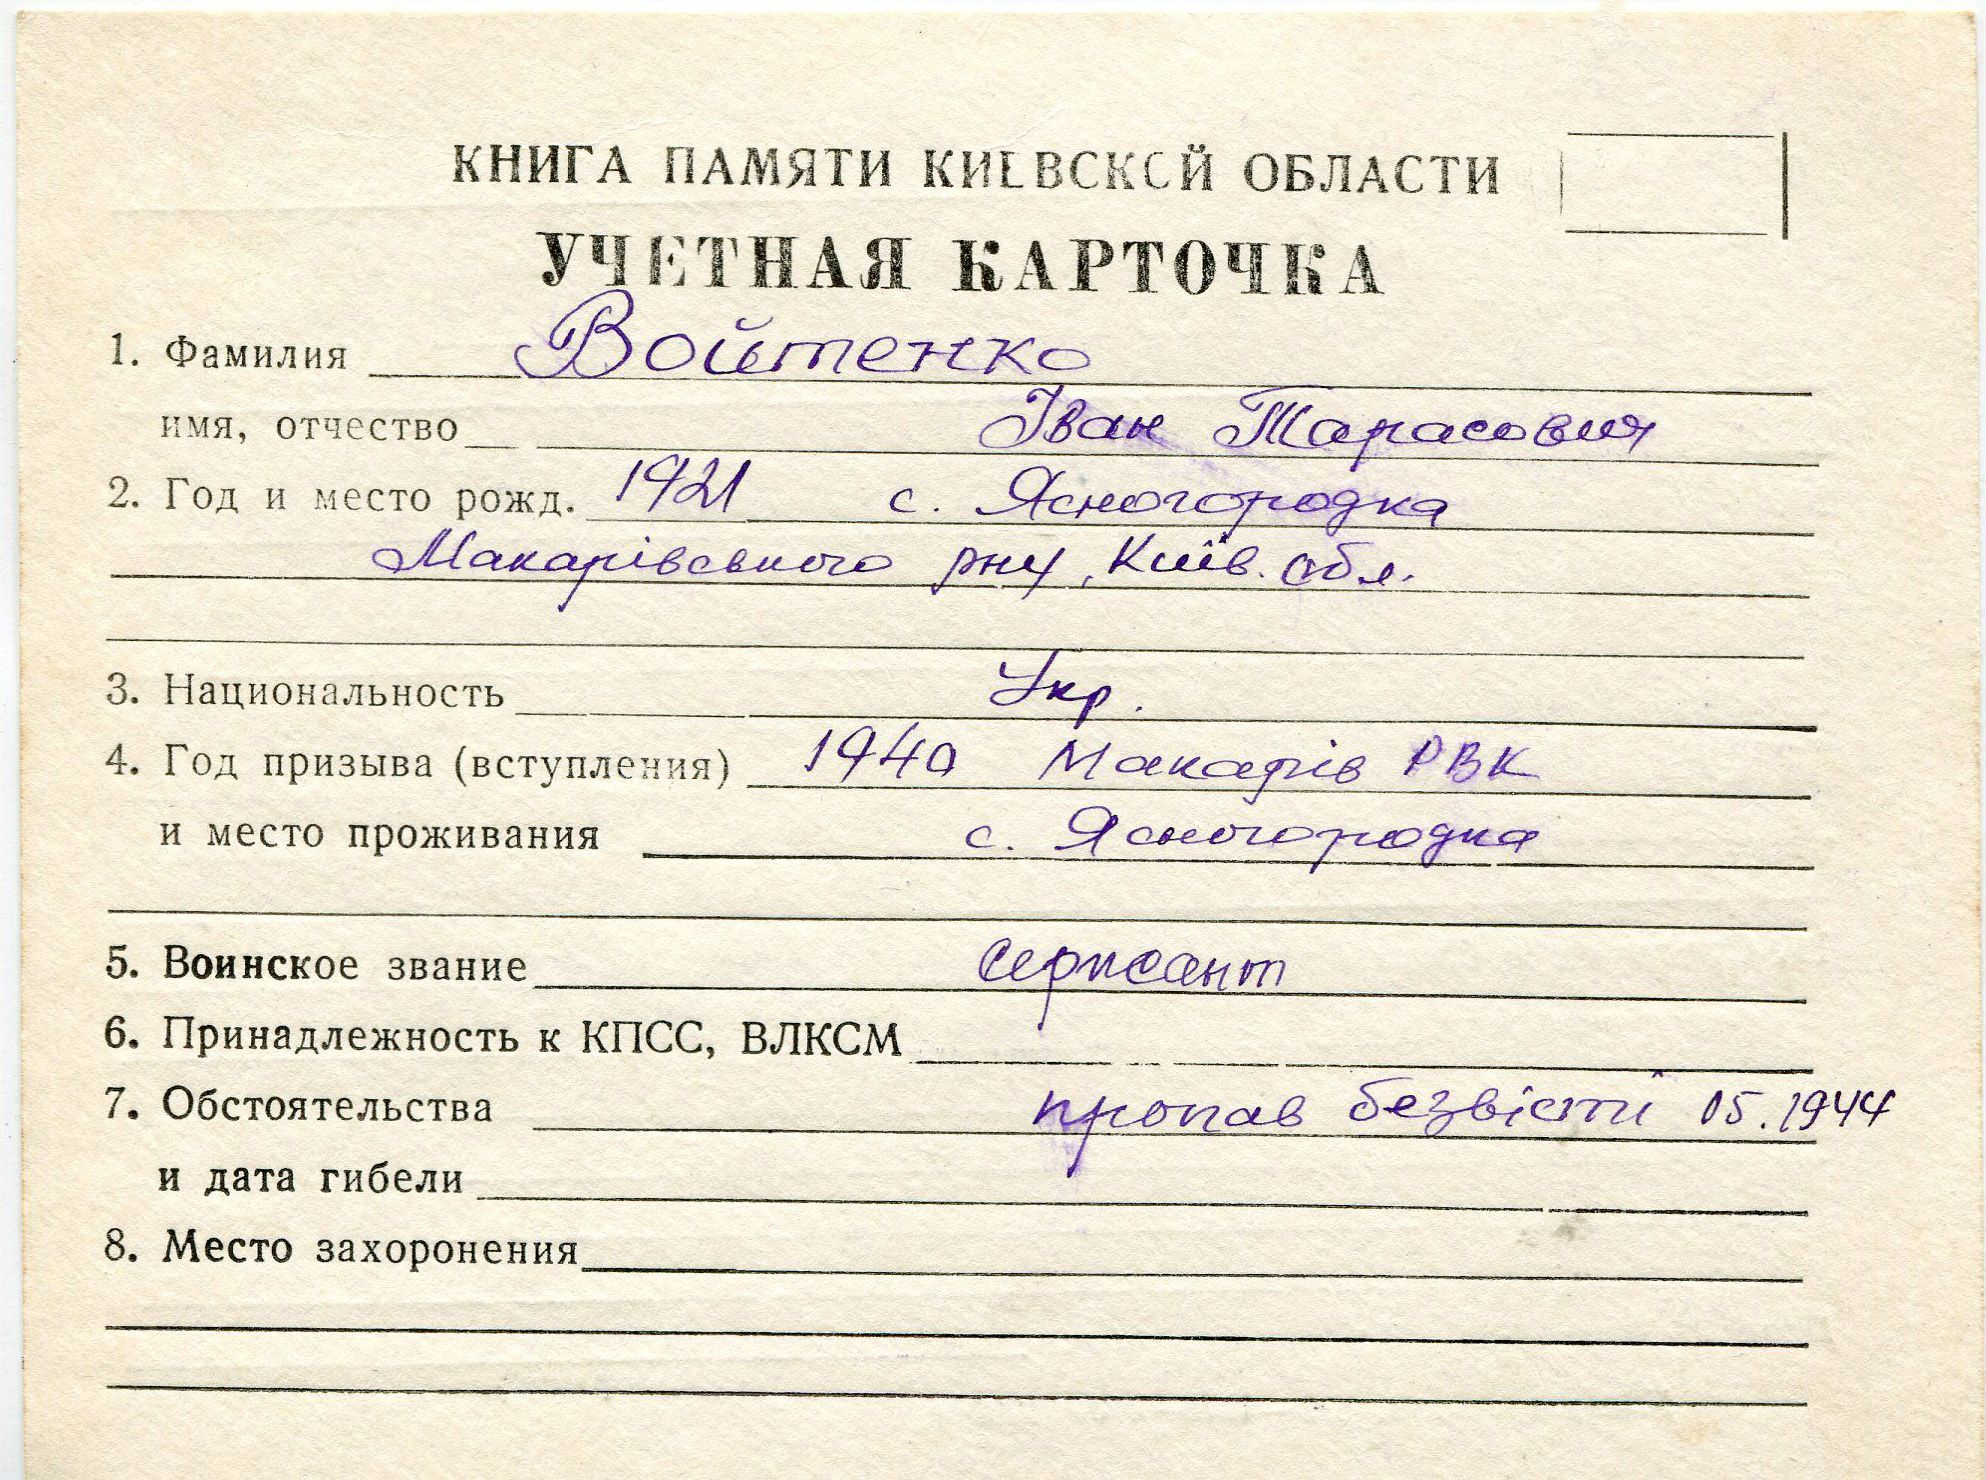 КНИГА ПАМЯТИ КИЕВСКОЙ ОБЛАСТИ
УЧЕТНАЯ КАРТОЧКА
1. Фамилия Войтенко
имя, отчество Іван Тарасович
2. Год и место рожд. 1921 с. Ясногородка
Макарівського р-ну, Київ. обл.
3. Национальность Укр.
4. Год призыва (вступления) 1940 Макарів РВК
и место проживания с. Ясногородка
5. Воинское звание сержант
6. Принадлежность к КПСС, ВЛКСМ
7. Обстоятельства пропав безвісти 05.1944
и дата гибели
8. Место захоронения